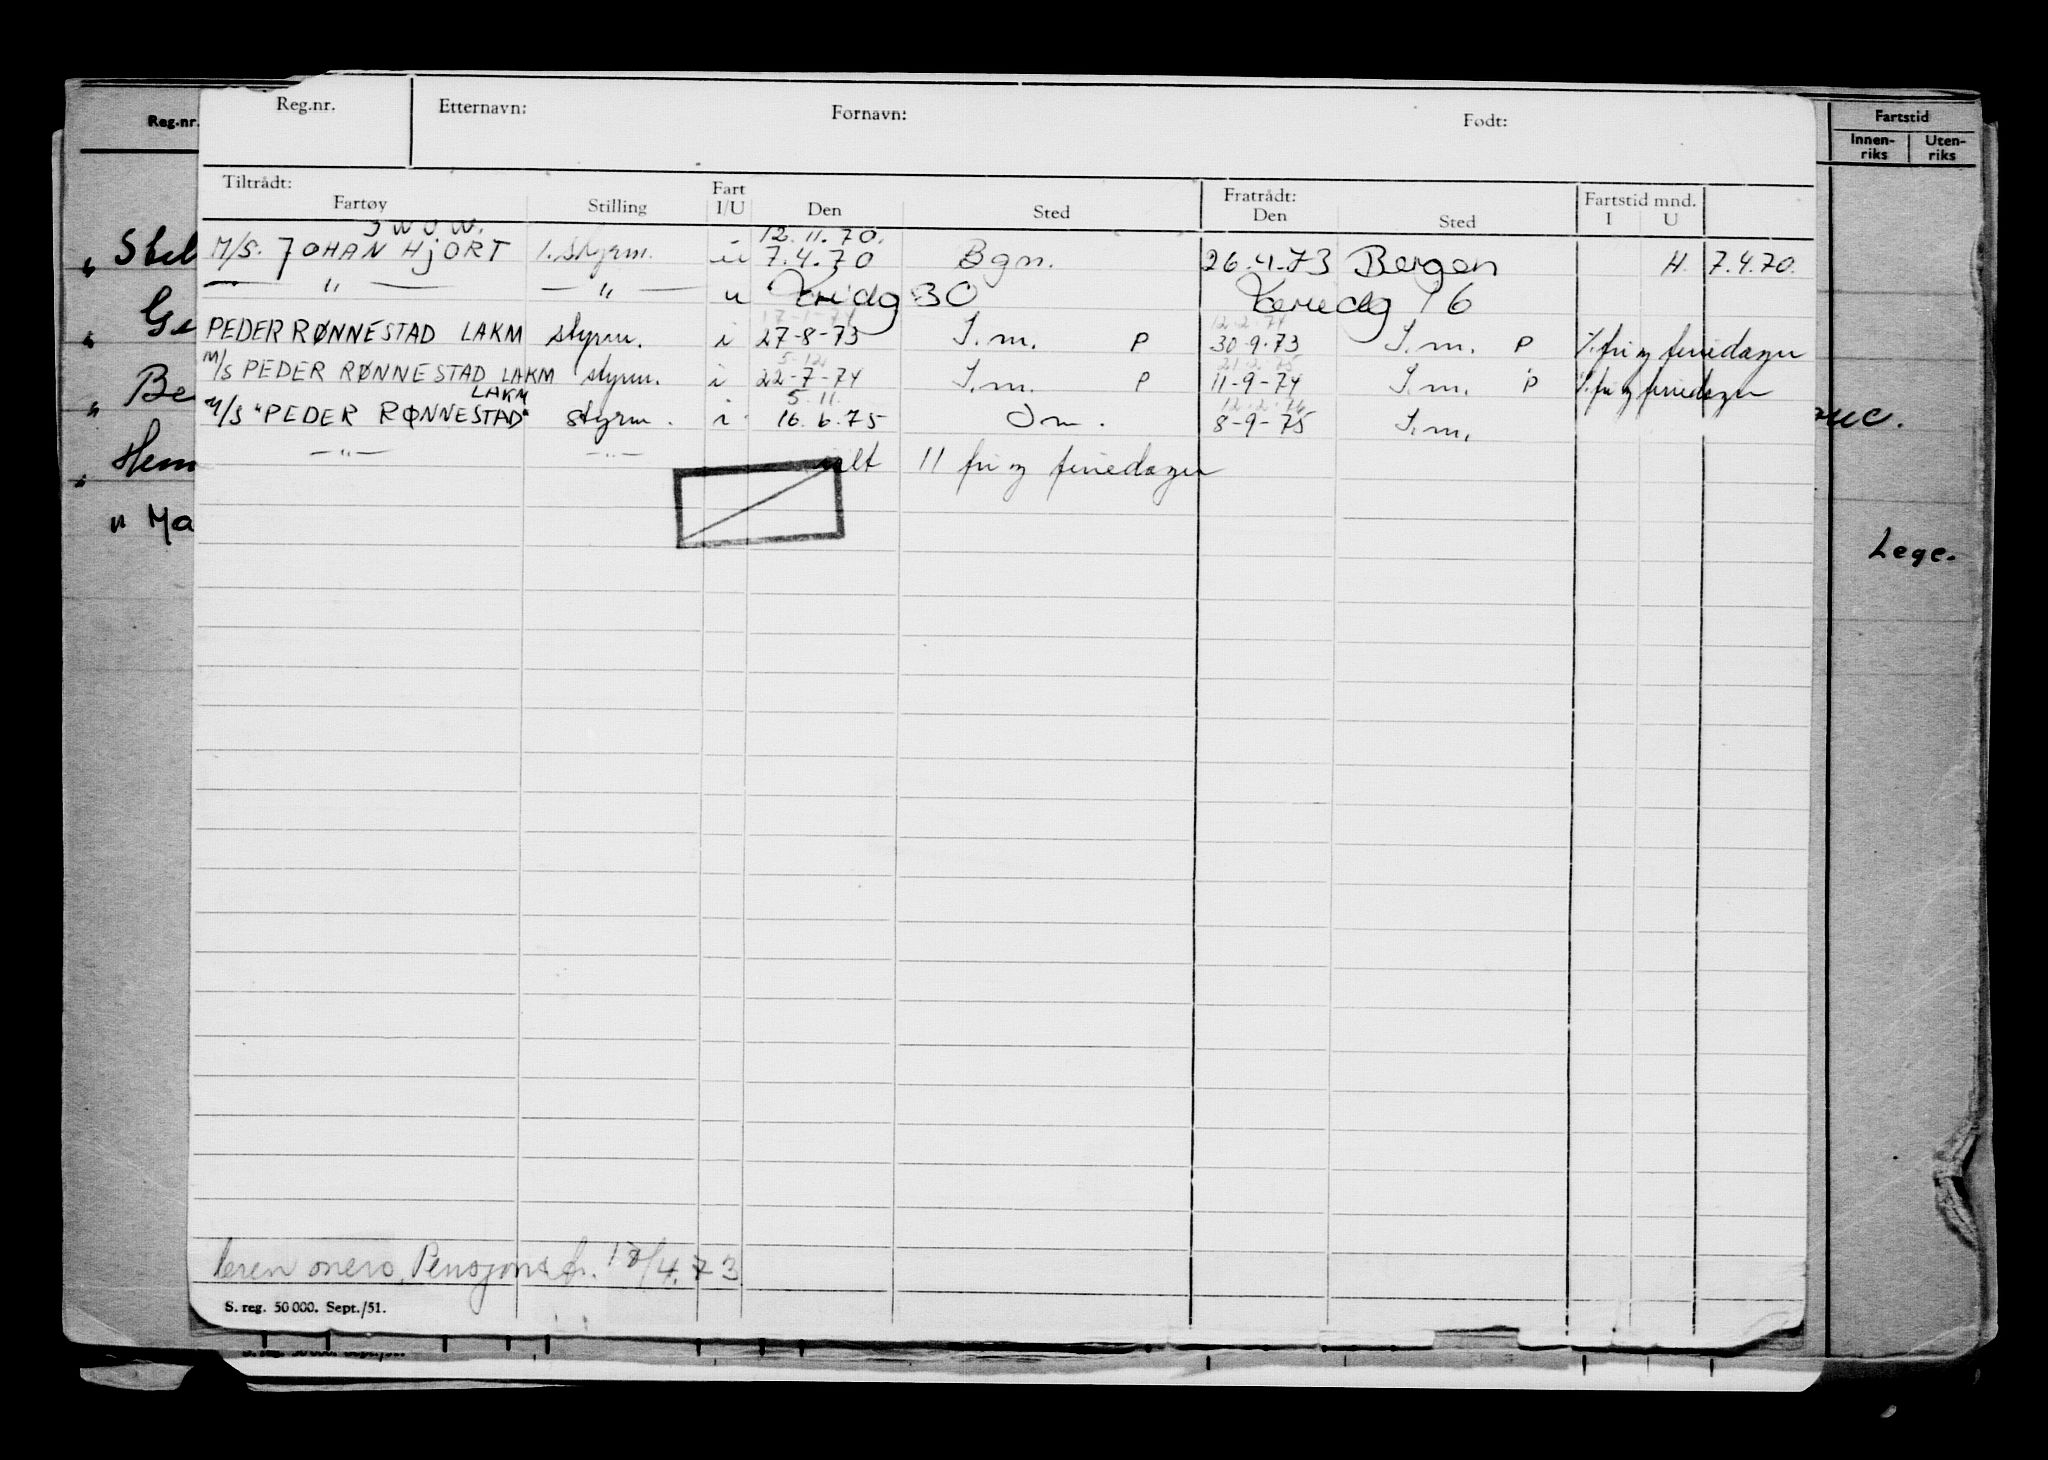 Reg.nr. Etternavn: Fornavn: Født:
Reg.nr.
Fartstid
Innen-riks Uten-riks
Tiltrådt: Fratrådt:
Fartøy Stilling Fart I/U Den Sted Den Sted Fartstid mnd. I U
12.11.70.
M/S. JOHAN HJORT 1. styrm. u 7.4.70 Bgn. 26.4.73 Bergen H. 7.4.70.
— " — — " — u 30 16
17-1-74 12-2-74
PEDER RØNNESTAD LAKM styrm. i 27-8-73 I.m. P 30-9-73 I.m. P %. fri og feriedager
5-12
M/S PEDER RØNNESTAD LAKM styrm. i 22-7-74 I.m. P 11-9-74 I.m. P %. fri og feriedager
LAKM 5.11. 12-2-76
M/S "PEDER RØNNESTAD" styrm. i 16.6.75 I m. 8-9-75 I.m.
— " — — " — alt 11 fri og feriedager
" Ma
Lege.
Pensjons 4.73
S. reg. 50 000. Sept./51.